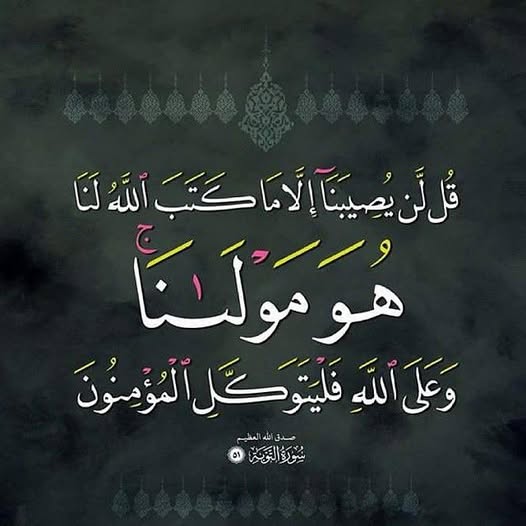 قُل لَّن يُصِيبَنَآ إِلَّا مَا كَتَبَ ٱللَّهُ لَنَا
هُوَ مَوْلَىٰنَا ۚ
وَعَلَى ٱللَّهِ فَلْيَتَوَكَّلِ ٱلْمُؤْمِنُونَ
صدق الله العظيم
سُورَةُ التَّوبَة ٥١